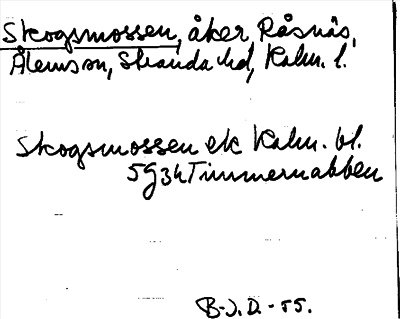 Skogsmossen, åker Råsnäs,
Ålemson, Stranda hd, Kalm. l.
Skogsmossen ek Kalm. bl.
5G3h Timmernabben
B-J. D. - 55.